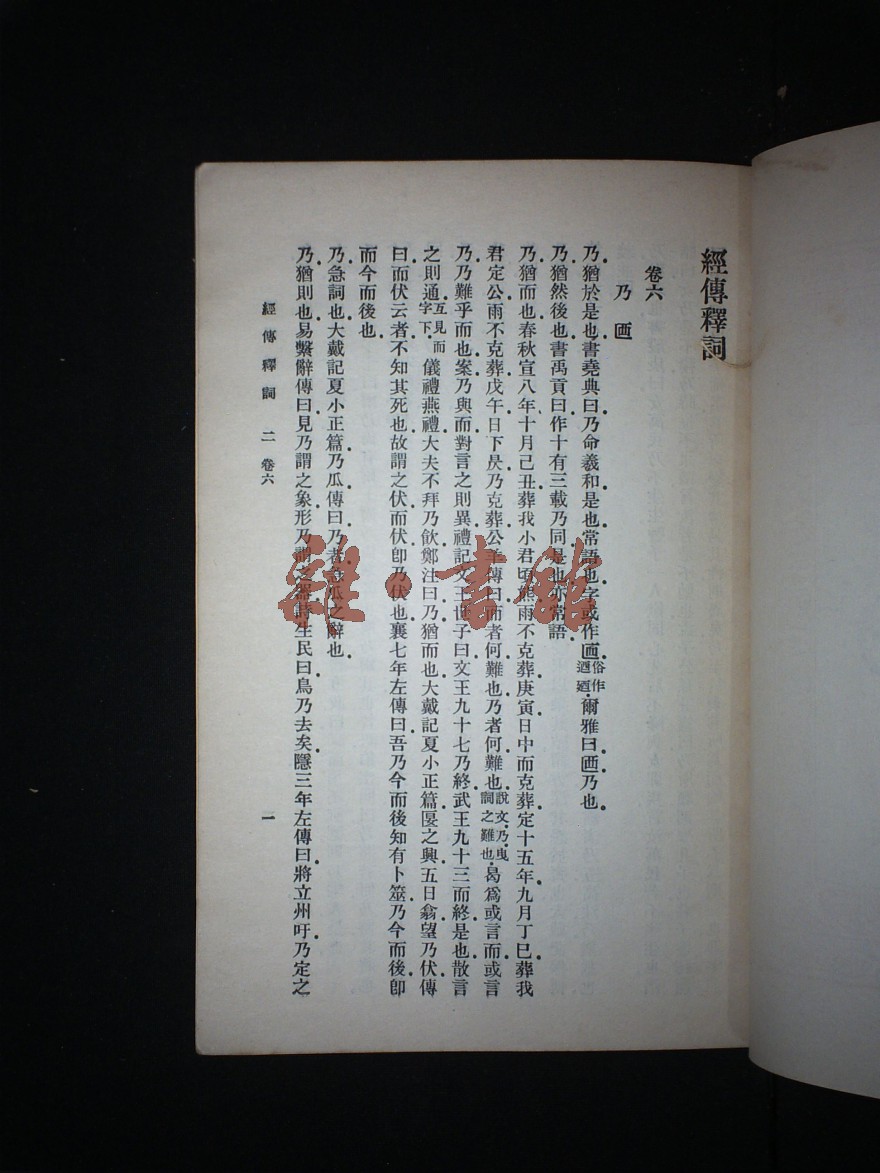 經傳釋詞
卷六
乃 𠧟
乃猶於是也書堯典曰乃命羲和是也常語也字或作𠧟俗作迺廼爾雅曰𠧟乃也
乃猶然後也書禹貢曰作十有三載乃同是也亦常語
乃猶而也春秋宣八年十月己丑葬我小君頃熊雨不克葬庚寅日中而克葬定十五年九月丁巳葬我
君定公雨不克葬戊午日下昃乃克葬公羊傳曰而者何難也乃者何難也說文乃曳詞之難也曷爲或言而或言
乃乃難乎而也案乃與而對言之則異禮記文王世子曰文王九十七乃終武王九十三而終是也散言
之則通互見而字下儀禮燕禮大夫不拜乃飮鄭注曰乃猶而也大戴記夏小正篇匽之興五日翕望乃伏傳
曰而伏云者不知其死也故謂之伏而伏卽乃伏也襄七年左傳曰吾乃今而後知有卜筮乃今而後卽
而今而後也
乃急詞也大戴記夏小正篇乃瓜傳曰乃者急瓜之辭也
乃猶則也易繫辭傳曰見乃謂之象形乃謂之器詩生民曰鳥乃去矣隱三年左傳曰將立州吁乃定之
經傳釋詞 二 卷六
一
雜·書館